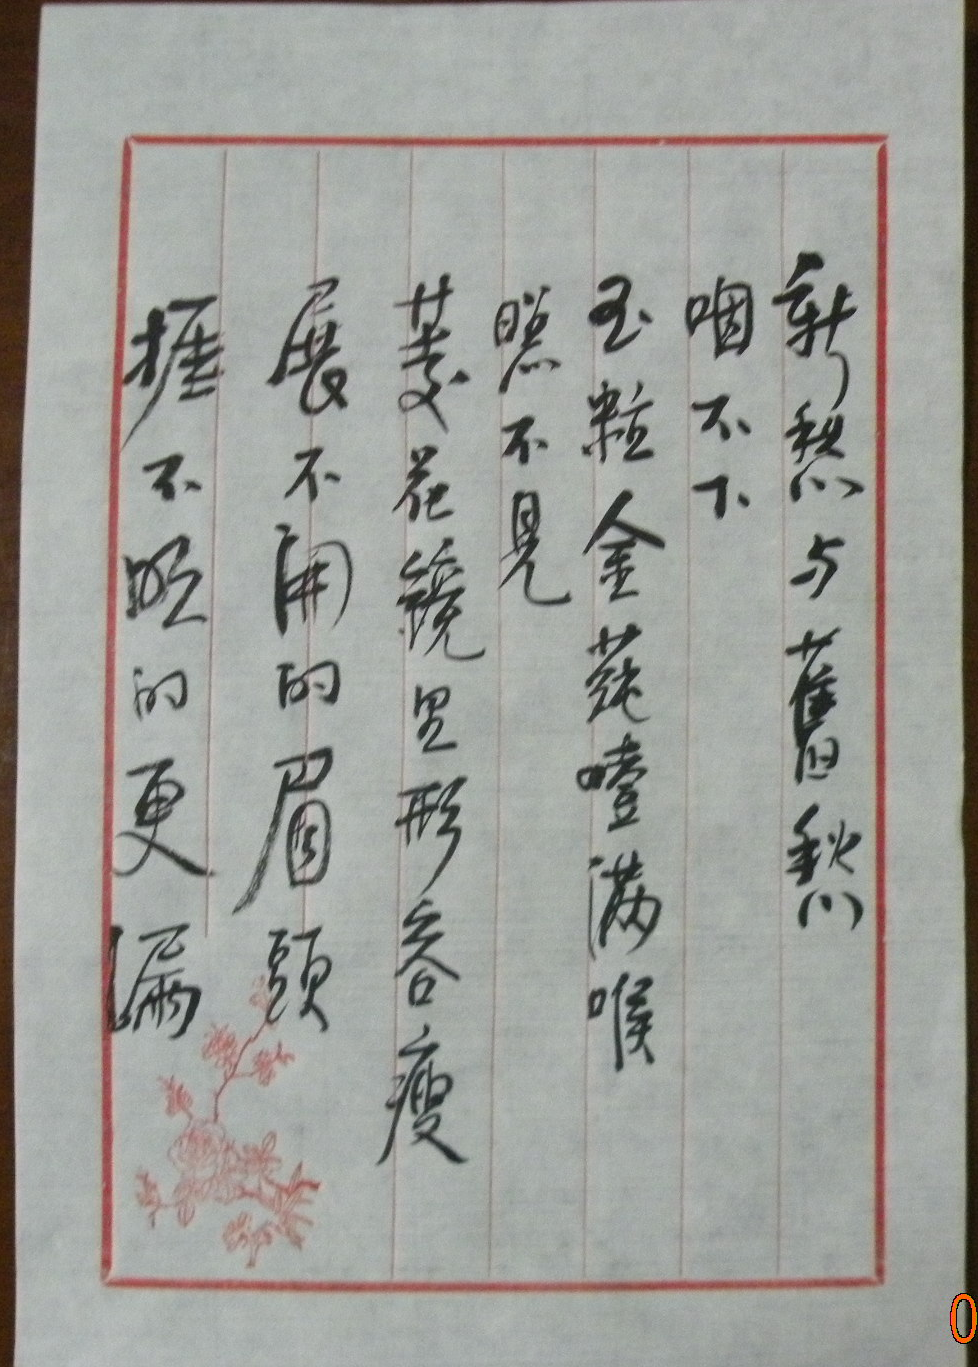 新愁与舊愁
咽不下
玉粒金莼噎满喉
照不見
菱花镜里形容瘦
展不開的眉頭
捱不明的更漏
0